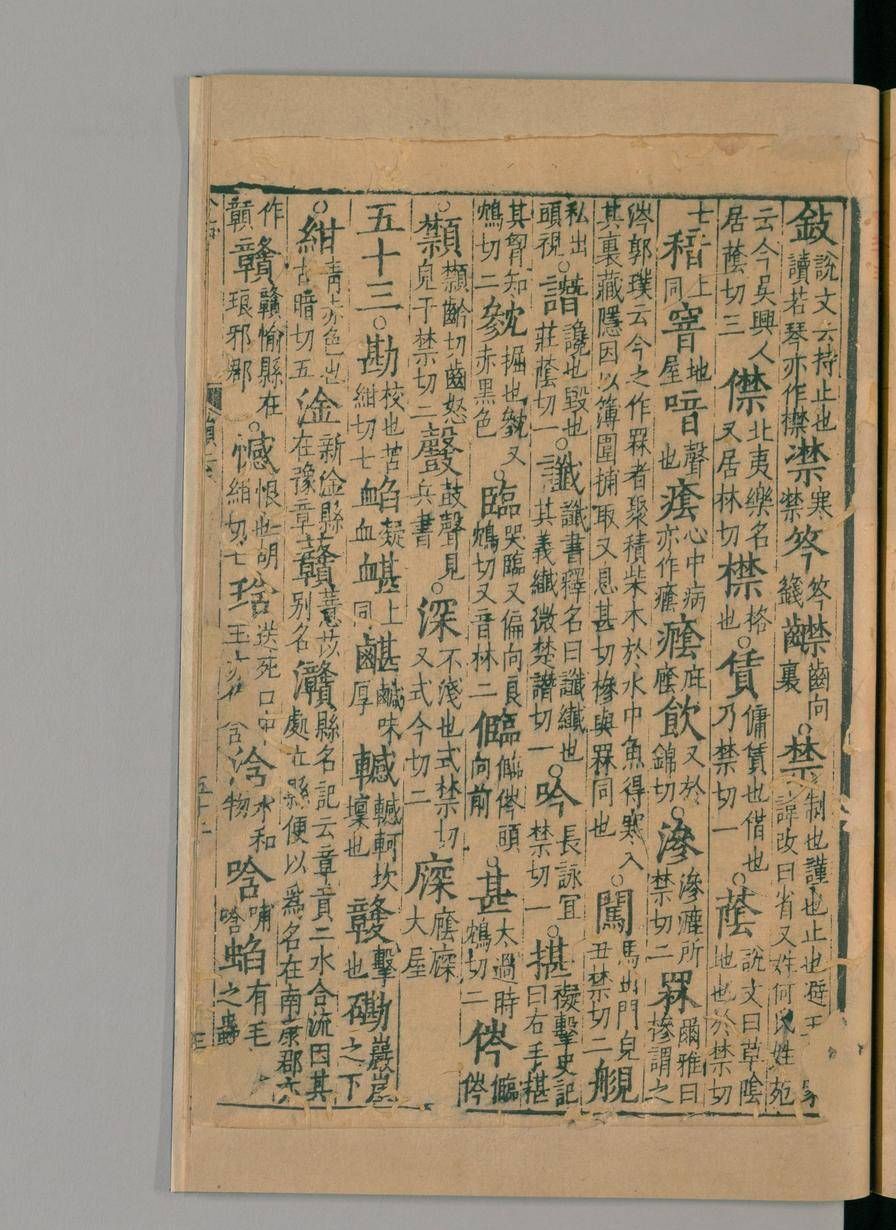 㪁說文云持止也讀若琴亦作㩒澿寒澿笒笒籤齽齒向裏○禁制也謹也止也避王諱改曰省又姓何氏姓苑
云今吳興人居蔭切三僸北夷樂名又居林切㯲格也○賃傭賃也借也乃禁切一○蔭說文曰草陰地也於禁切
七䅧上同窨地屋喑聲也㾙心中病亦作癊癊庇癊飲又於錦切○滲滲漉所禁切二罧爾雅曰槮謂之
涔郭璞云今之作罧者聚積柴木於水中魚得寒入其裏藏隱因以簿圍捕取又息甚切槮與罧同也○闖馬出門皃丑禁切二
私出頭視○譖讒也毀也莊蔭切一○讖讖書釋名曰讖纖也其義纖微楚譖切一○吟長詠宜禁切一○揕擬擊史記曰右手揕
其胷知鴆切二掘也又赤黑色○臨哭臨又偏向良鴆切又音林二頭向前○甚太過時鴆切二
齒怒皃于禁切二鼓聲見兵書○深不淺也式禁切又式今切二大屋
五十三○勘校也苦紺切七衉凝血䘓上同䶠鹹味厚轗轗軻坎壈也贛擊也磡巖崖之下
○紺青赤色也古暗切五淦新淦縣在豫章薏苡別名灨縣名記云章貢二水合流因其處立縣便以爲名在南康郡亦
作贑贛贛榆縣在琅邪郡○憾恨也胡紺切七琀送死口中玉亦作含浛水和物唅哺唅蛿有毛之蟲